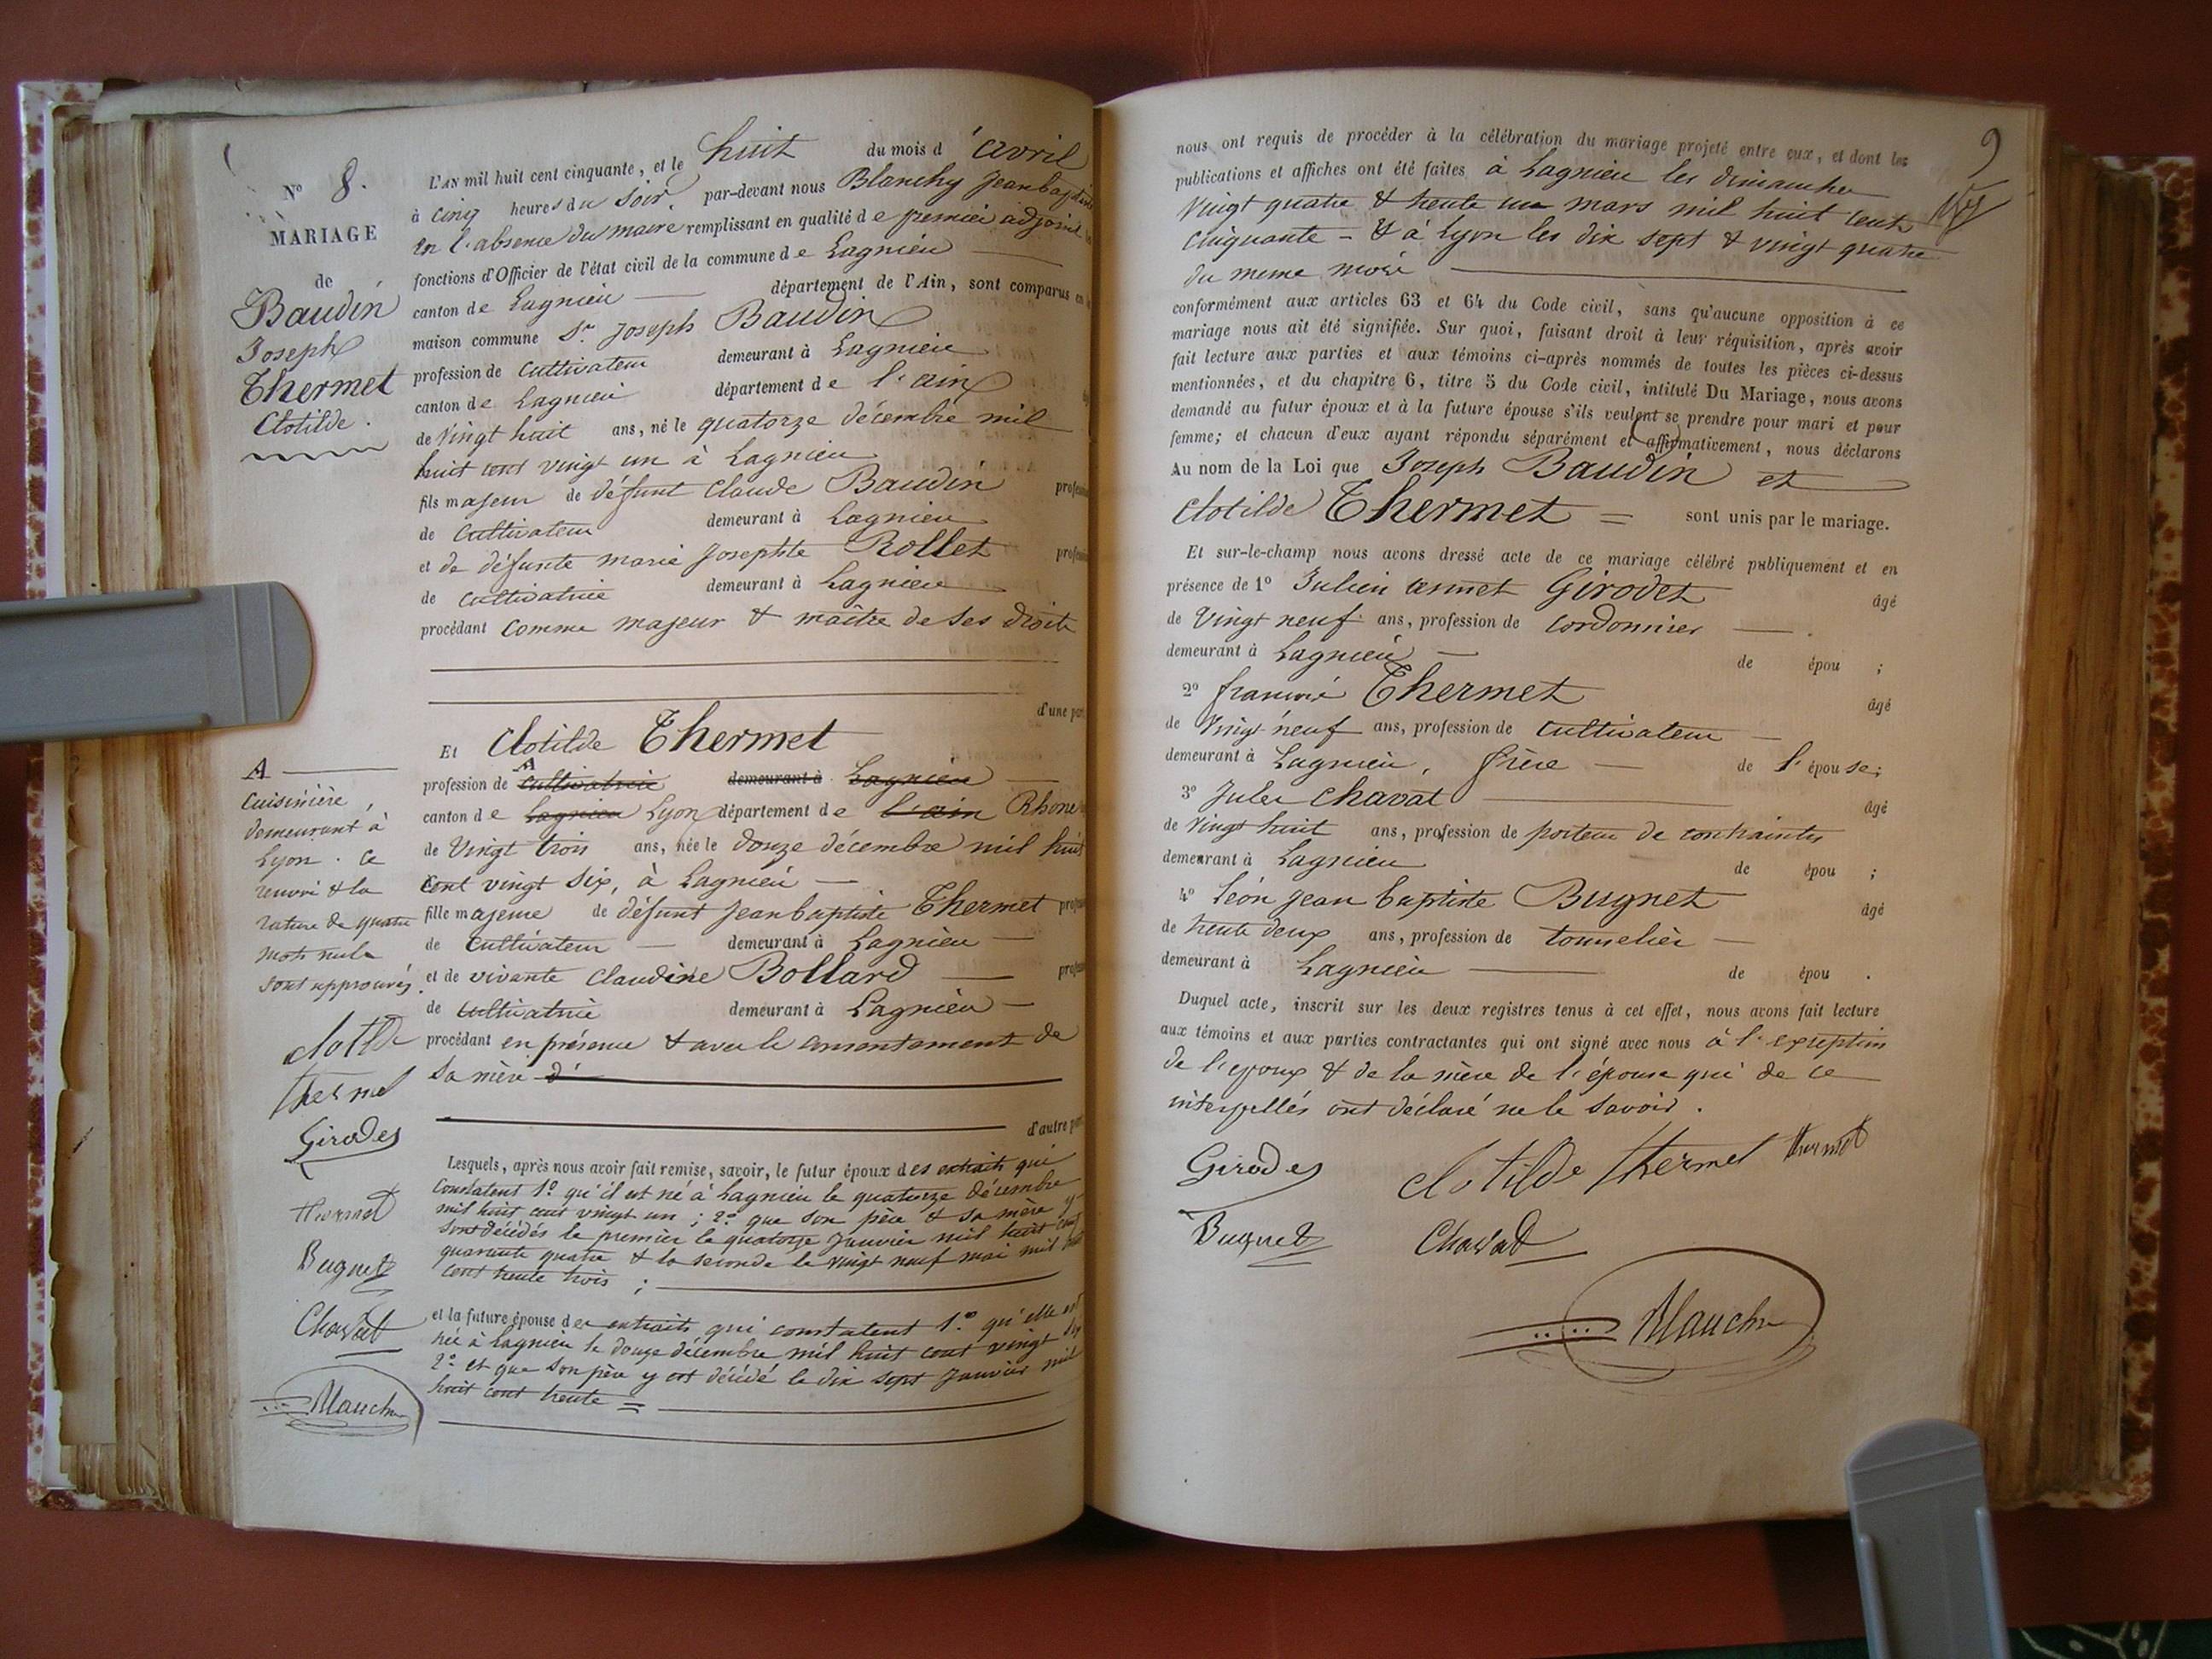 N° 8.
MARIAGE
de
Baudin
Joseph
Thermet
Clotilde.
L'AN mil huit cent cinquante, et le huit du mois d'avril
à cinq heures du soir, par-devant nous Blanchy Jean baptiste
en l'absence du maire remplissant en qualité de premier adjoint
fonctions d'Officier de l'état civil de la commune de Lagnieu
canton de Lagnieu département de l'Ain, sont comparus en
maison commune Sr. Joseph Baudin
profession de cultivateur demeurant à Lagnieu
canton de Lagnieu département de l'ain
de vingt huit ans, né le quatorze décembre mil
huit cent vingt un à Lagnieu
fils majeur de défunt Claude Baudin
de cultivateur demeurant à Lagnieu
et de défunte marie Josephte Rollet
de cultivatrice demeurant à Lagnieu
procédant comme majeur & maître de ses droits
d'une par
Et Clotilde Thermet
A
profession de cultivatrice demeurant à Lagnieu
canton de Lagnieu Lyon département de l'ain Rhone
de vingt trois ans, née le douze décembre mil huit
cent vingt six, à Lagnieu
fille majeure de défunt Jean baptiste Thermet
de cultivateur demeurant à Lagnieu
et de vivante Claudine Bollard
de cultivatrice demeurant à Lagnieu
procédant en présence & avec le consentement de
sa mère
d'autre par
A
cuisinière,
demeurant à
Lyon. ce
renvoi & la
rature de quatre
mots nuls
sont approuvés.
clotilde
thermet
Girodet
thermet
Bugnet
Chavat
Blanchy
Lesquels, après nous avoir fait remise, savoir, le futur époux des extraits qui
constatent 1° qu'il est né à Lagnieu le quatorze décembre
mil huit cent vingt un; 2° que son père & sa mère y
sont décédés le premier le quatorze janvier mil huit cent
quarante quatre & la seconde le vingt neuf mai mil huit
cent trente trois;
et la future épouse des extraits qui constatent 1° qu'elle est
née à Lagnieu le douze décembre mil huit cent vingt six
2° et que son père y est décédé le dix sept janvier mil
huit cent trente =
9
nous ont requis de procéder à la célébration du mariage projeté entre eux, et dont les
publications et affiches ont été faites à Lagnieu les dimanches
vingt quatre & trente un mars mil huit cent
cinquante = & à Lyon les dix sept & vingt quatre
du meme mois
conformément aux articles 63 et 64 du Code civil, sans qu'aucune opposition à ce
mariage nous ait été signifiée. Sur quoi, faisant droit à leur réquisition, après avoir
fait lecture aux parties et aux témoins ci-après nommés de toutes les pièces ci-dessus
mentionnées, et du chapitre 6, titre 5 du Code civil, intitulé Du Mariage, nous avons
demandé au futur époux et à la future épouse s'ils veulent se prendre pour mari et pour
femme; et chacun d'eux ayant répondu séparément et affirmativement, nous déclarons
Au nom de la Loi que Joseph Baudin et
Clotilde Thermet = sont unis par le mariage.
Et sur-le-champ nous avons dressé acte de ce mariage célébré publiquement et en
présence de 1° Julien annet Girodet âgé
de vingt neuf ans, profession de cordonnier
demeurant à Lagnieu de épou ;
2° francois Thermet âgé
de vingt neuf ans, profession de cultivateur
demeurant à Lagnieu, frère de l'épouse;
3° Jules Chavat âgé
de vingt huit ans, profession de porteur de contraintes
demeurant à Lagnieu de épou ;
4° Léon jean baptiste Bugnet âgé
de trente deux ans, profession de tonnelier
demeurant à Lagnieu de épou .
Duquel acte, inscrit sur les deux registres tenus à cet effet, nous avons fait lecture
aux témoins et aux parties contractantes qui ont signé avec nous à l'exeption
de l'epoux & de la mère de l'épouse qui de ce
interpellés ont déclaré ne le savoir.
Girodet clotilde thermet thermet
Bugnet Chavat
Blanchy